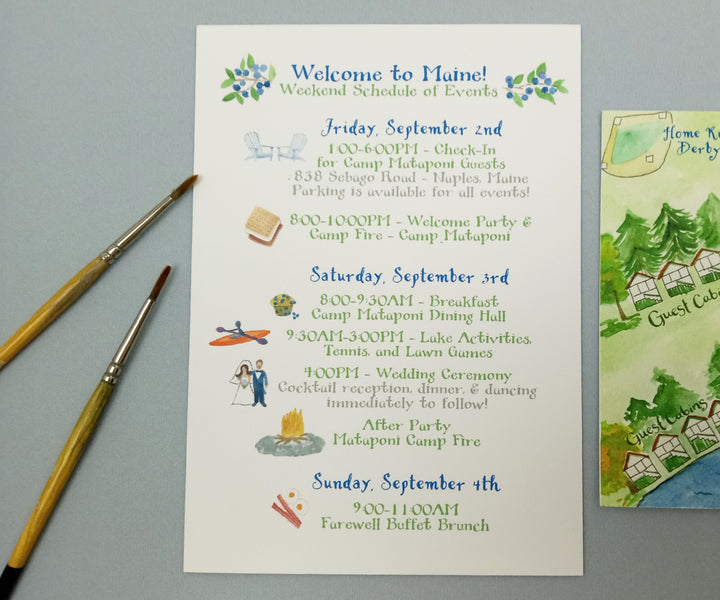 Welcome to Maine!
Weekend Schedule of Events
Friday, September 2nd
1:00-6:00PM - Check-In
for Camp Mataponi Guests
838 Sebago Road - Naples, Maine
Parking is available for all events!
8:00-10:00PM - Welcome Party &
Camp Fire - Camp Mataponi
Saturday, September 3rd
8:00-9:30AM - Breakfast
Camp Mataponi Dining Hall
9:30AM-3:00PM - Lake Activities,
Tennis, and Lawn Games
4:00PM - Wedding Ceremony
Cocktail reception, dinner, & dancing
immediately to follow!
After Party
Mataponi Camp Fire
Sunday, September 4th
9:00-11:00AM
Farewell Buffet Brunch
Home
Derby
Guest Cabins
Guest Cabins